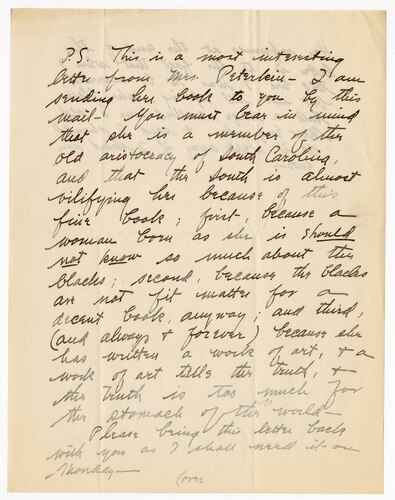 P.S. This is a most interesting
letter from Mrs. Peterkin - I am
sending her book to you by this
mail - You must bear in mind
that she is a member of the
old aristocracy of South Carolina,
and that the South is almost
vilifying her because of this
fine book; first, because a
woman born as she is should
not know so much about the
blacks; second, because the blacks
are not fit matter for a
decent book, anyway; and third,
(and always & forever) because she
has written a work of art, & a
work of art tells the truth, &
the truth is too much for
the stomach of the world
Please bring this letter back
with you as I shall need it on
Monday -
(over